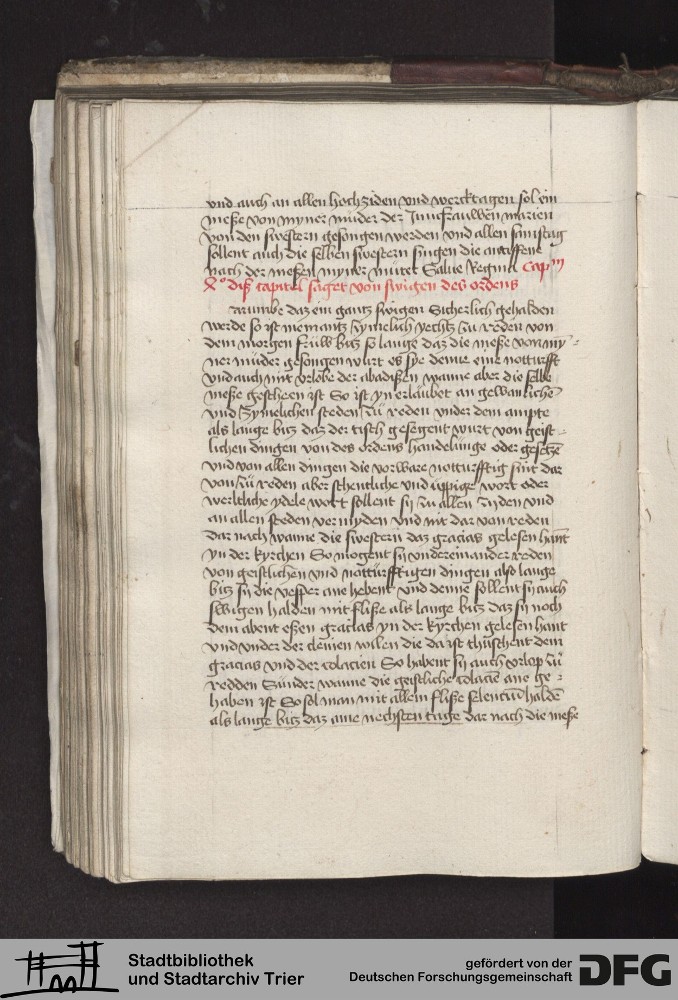 vnd auch an allen hochziden vnd wercktagen sol ein
meße von myner muder der Juncfrauwen marien
von den swestern gesongen werden vnd allen samstag
sollent auch die selben swestern singen die antiffene
nach der meßen myner muter Salue Regina Capm
Xo diß capitel saget von swigen des ordens
arumbe daz ein gantz swigen Sicherlich gehalden
werde so ist niemantz zymelich yechtz zu reden von
dem morgen fruw bitz so lange daz die meße von my-
ner muder gesongen wurt es sye denne eine notturfft
vnd auch mit vrlobe der abadißen wanne aber die selbe
meße gescheen ist So ist yn erlaubet an gewanlichen
vnd zymelichen steden zu reden vnder dem ampte
als lange bitz daz der tisch gesegent wurt von geist-
lichen dingen von des ordens handelunge oder gesetze
vnd von allen dingen die vorware notturfftig sint dar
von zu reden aber schentliche vnd uppige wort oder
werltliche ydele wort sollent sij zu allen ziden vnd
an allen steden vermyden vnd nit dar von reden
dar nach wanne die swestern daz gracias gelesen hant
yn der kyrchen So mogent sij vndereinander reden
von geistlichen vnd notturfftigen dingen also lange
bitz sij die vesper ane hebent vnd denne sollent sij auch
swigen halden mit fliße als lange bitz daz sij noch
dem abent eßen gracias yn der kyrchen gelesen hant
vnd vnder der cleinen wilen die da ist thuschent dem
gracias vnd der colacien So habent sij auch vrlop zu
redden Sunder wanne die geistliche colacien ane ge-
haben ist So sol man mit allem fliße silencium halden
als lange bitz daz ame nechsten tage dar nach die meße
Stadtbibliothek
und Stadtarchiv Trier
gefördert von der
Deutschen Forschungsgemeinschaft
DFG